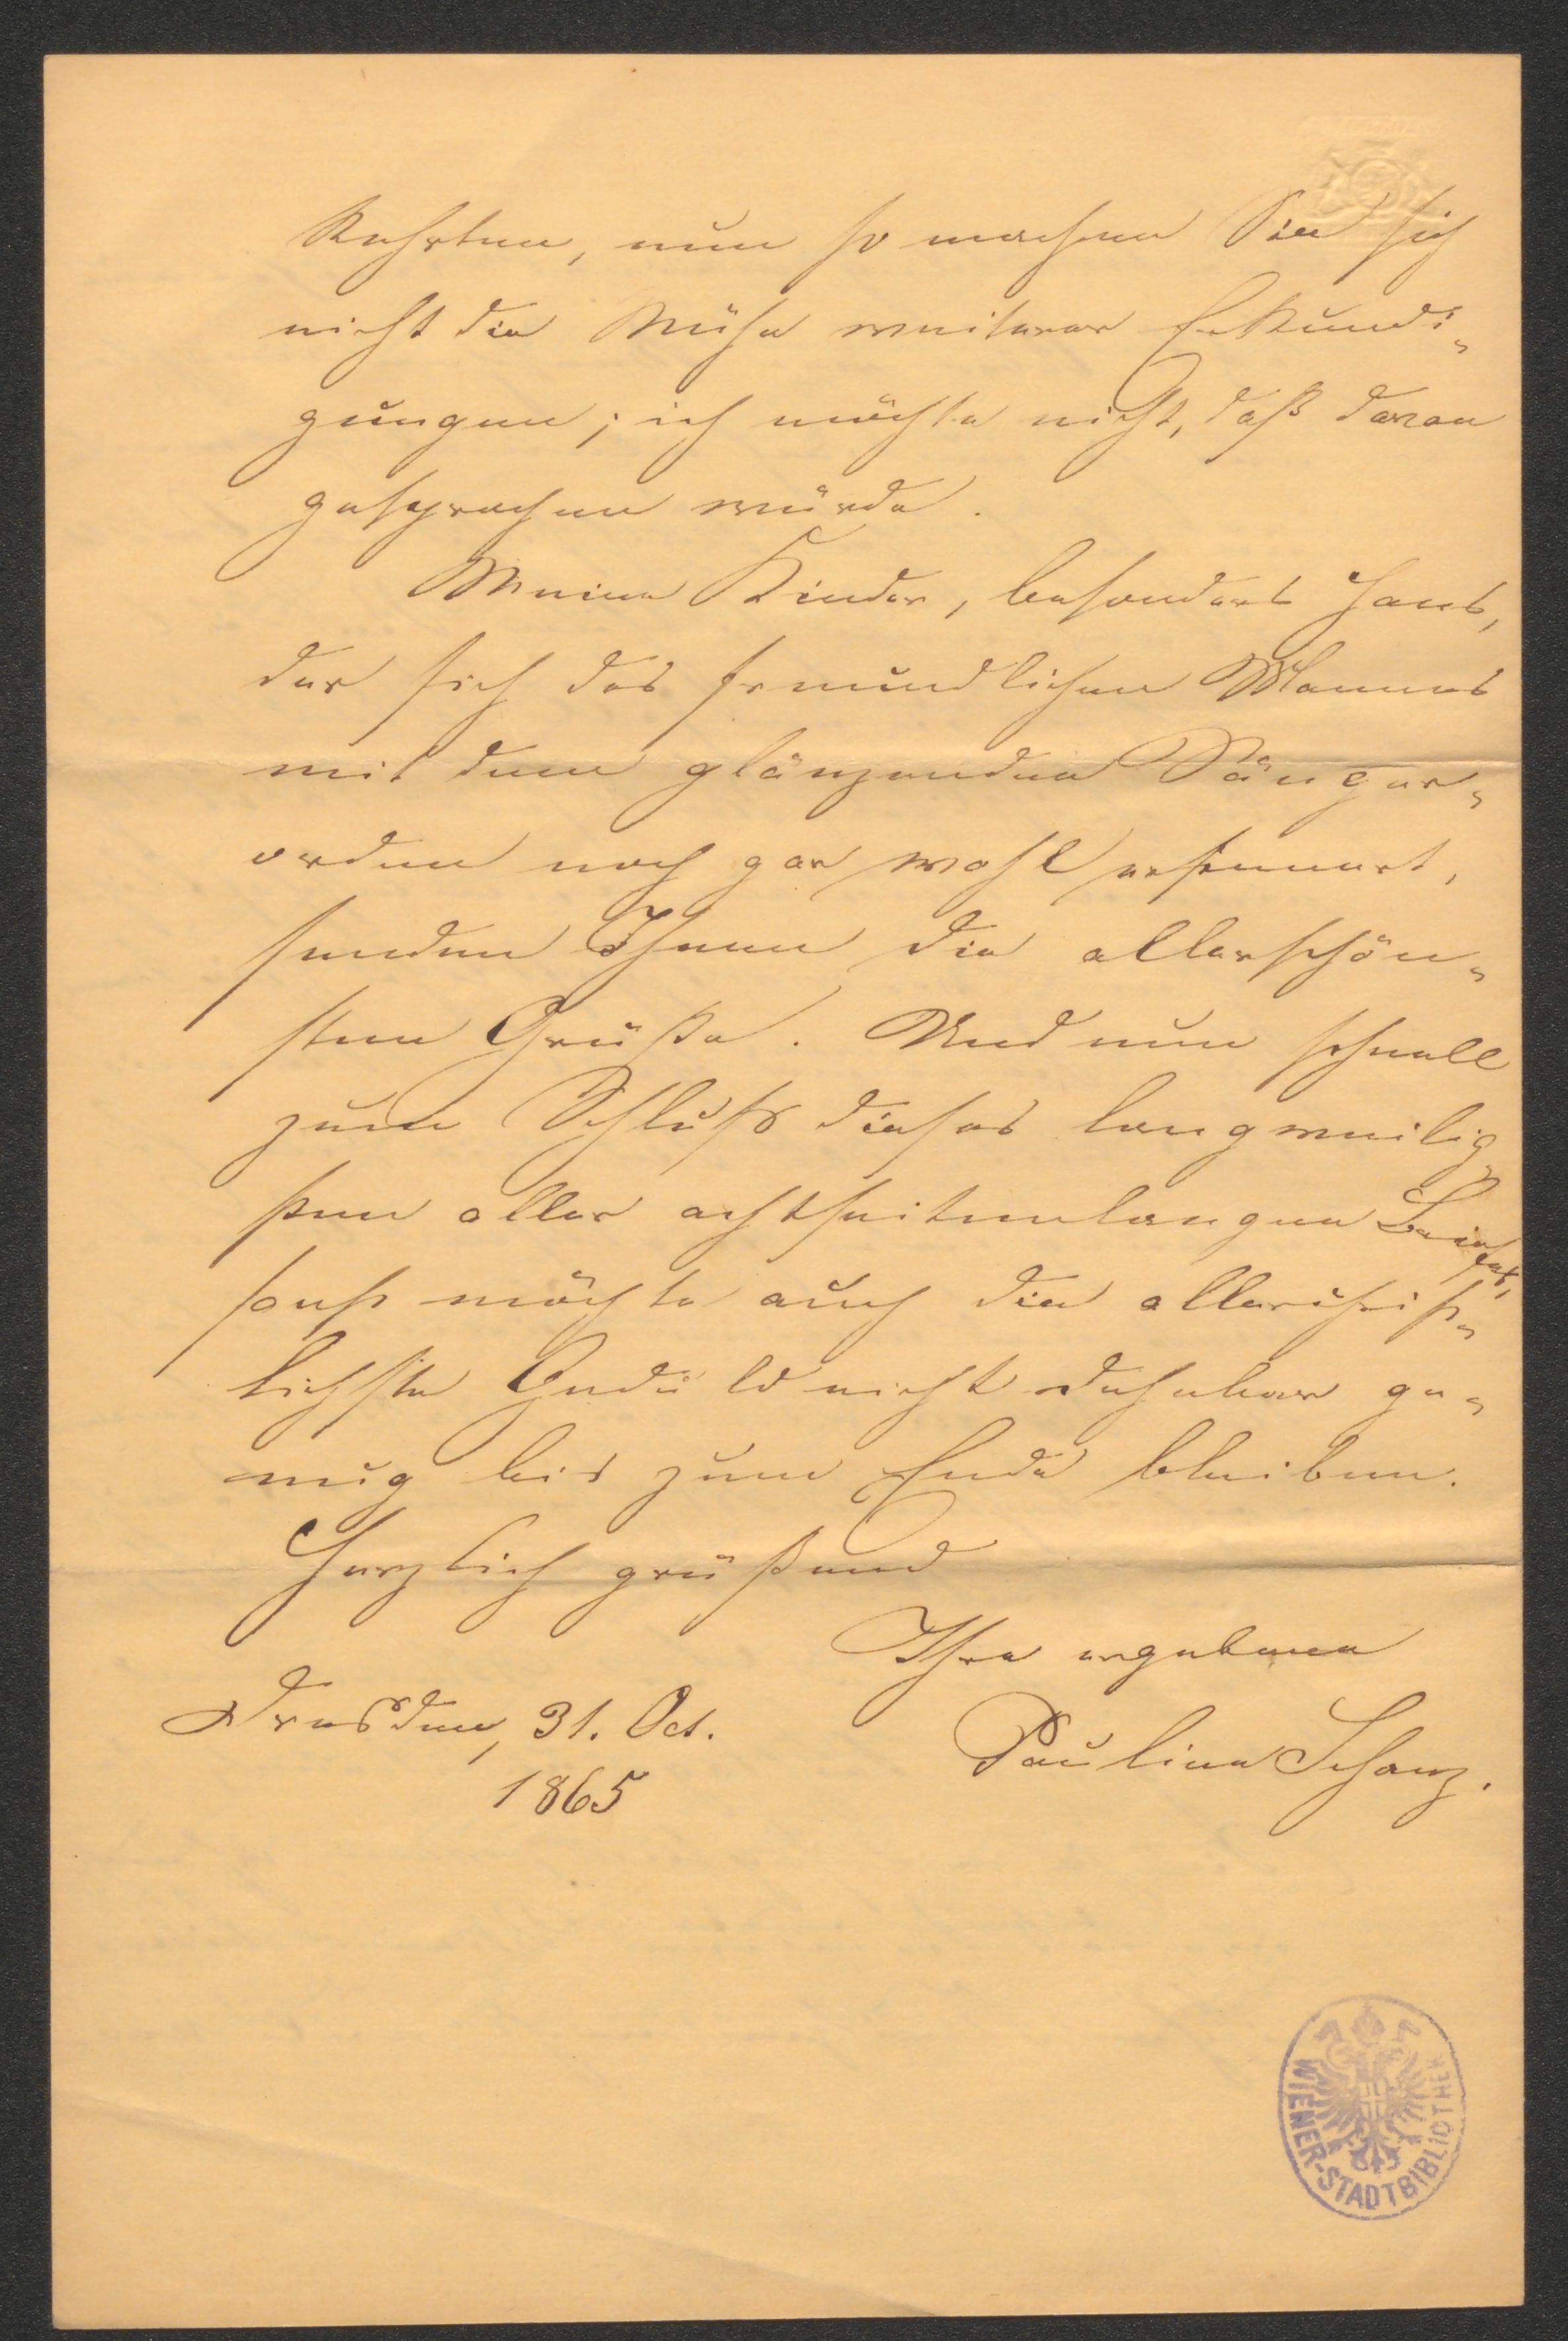 kehrten, nun so machen Sie sich
nicht die Mühe weiterer Erkundi-
gungen; ich möchte nicht, daß davon
gesprochen würde.
Meine Kinder, besonders Hans,
der sich des freundlichen Mannes
mit dem glänzenden Sänger-
orden noch gar wohl erinnert,
senden Ihnen die allerschön-
sten Grüße. Und nun schnell
zum Schluß dieses langweilig
sten aller achtseitenlangen Briefe,
sonst möchte auch die allerchrist-
lichste Geduld nicht dehnbar ge-
nug bis zum Ende bleiben.
Herzlich grüßend
Ihre ergebene
Dresden, 31. Oct.
Pauline Schanz.
1865
WIENER-STADTBIBLIOTHEK